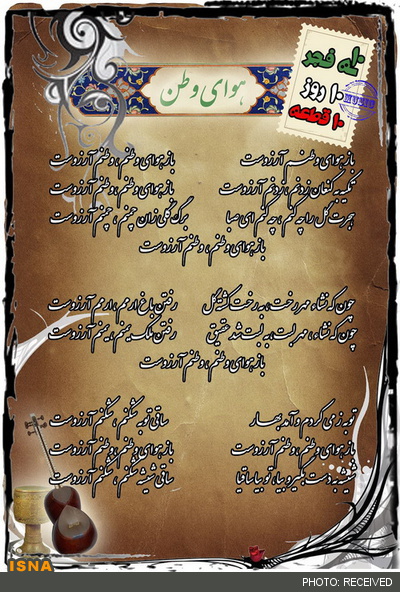 دهه فجر
۱۰ روز
۱۰ قطعه
MUSIC
هوای وطن
باز هوای وطنم آرزوست باز هوای وطنم، وطنم آرزوست
تکیه به کنعان زدنم، زدنم آرزوست باز هوای وطنم، وطنم آرزوست
هجرت گل را چه کنم، چه کنم ای صبا برگ زان چمنم، چمنم آرزوست
باز هوای وطنم، وطنم آرزوست
چون که نشاء، مهر رخت، به رخت گشته گل رفتن باغ ارمم، ارمم آرزوست
چون که نشاء، مهر لبت، به لبت شد عقیق رفتن ملک یمنم، یمنم آرزوست
باز هوای وطنم، وطنم آرزوست
توبه ز می کردم و آمد بهار ساقی توبه شکنم، شکنم آرزوست
باز هوای وطنم، وطنم آرزوست باز هوای وطنم، وطنم آرزوست
شیشه به دست بگیر و بیا، تو بیا ساقیا ساقی شیشه شکنم، شکنم آرزوست
ISNA
PHOTO: RECEIVED